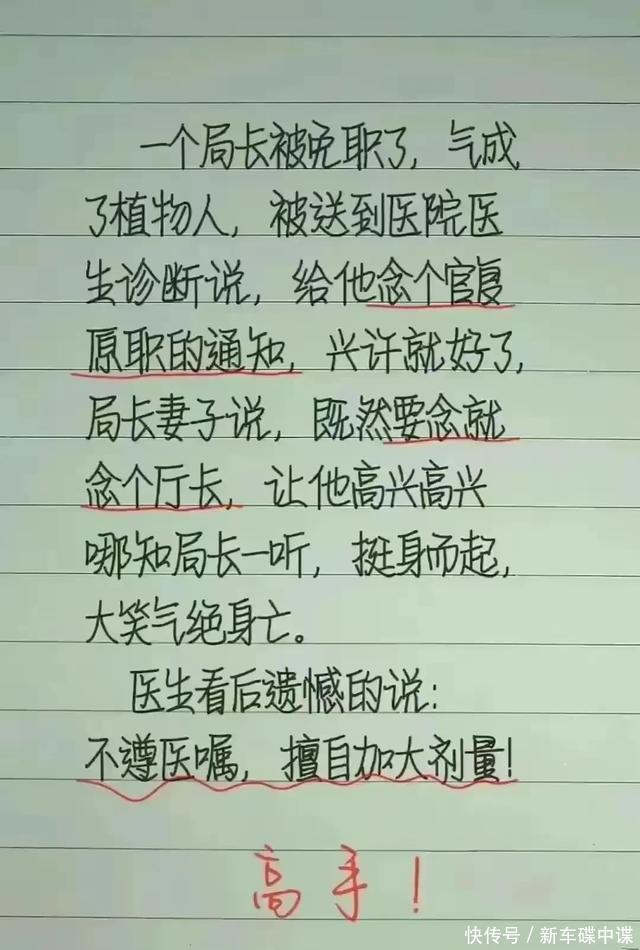 一个局长被免职了，气成
了植物人，被送到医院医
生诊断说，给他念个官复
原职的通知，兴许就好了，
局长妻子说，既然要念就
念个厅长，让他高兴高兴
哪知局长一听，挺身而起，
大笑气绝身亡。
医生看后遗憾的说：
不遵医嘱，擅自加大剂量！
高手！
快传号／新车碟中谍